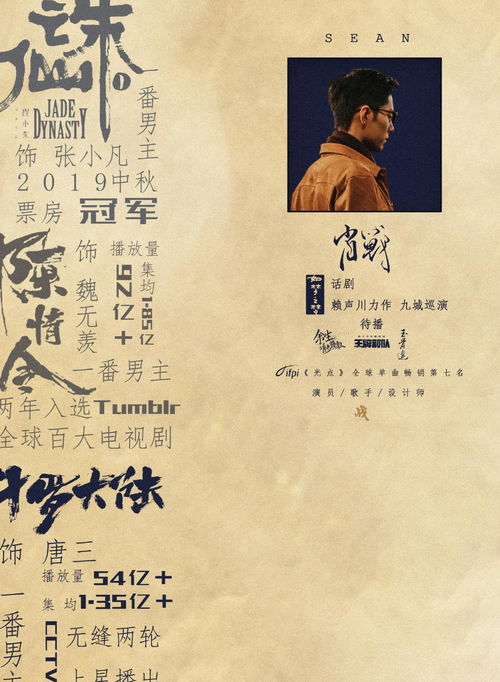 诛仙
I
JADE
DYNASTY
一番男主
饰 张小凡
2019中秋
票房 冠军
陈情令
饰 魏无羡
播放量
92亿+
集均
1·85亿
一番男主
两年入选Tumblr
全球百大电视剧
斗罗大陆
饰 唐三
播放量 54亿+
集 均1·35亿+
一番男
CCTV
无缝两轮
上星播出
SEAN
肖战
如梦之梦
话剧
赖声川力作 九城巡演
待播
余生
请多指教
王牌部队
玉骨遥
ifpi《光点》全球单曲畅销第七名
演员/歌手/设计师
战